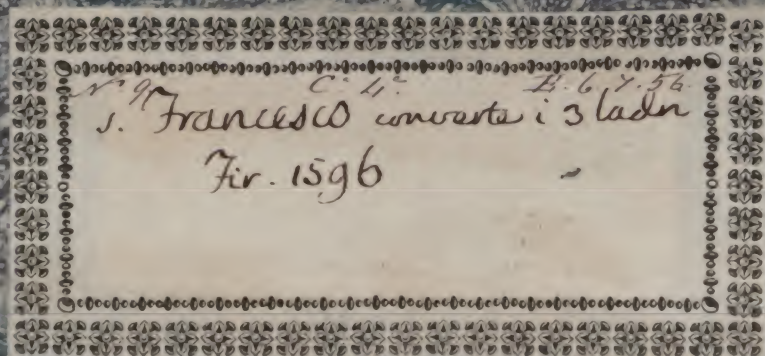 Nº 91 C. 4º. B. 6. 7. 56.
s. Francesco converte i 3 ladri
Fir. 1596